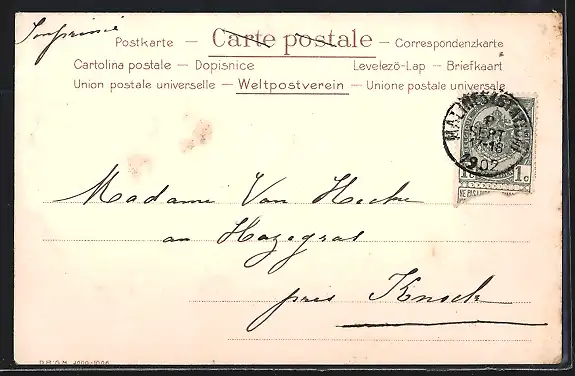 Imprimé
Postkarte — Carte postale — Correspondenzkarte
Cartolina postale — Dopisnice Levelezö-Lap — Briefkaart
Union postale universelle — Weltpostverein — Unione postale universale
MALINES (STATION)
SEPT
02
1c 1c
Madame Van Hecke
au Hazegras
près Knock
D.R.G.M.